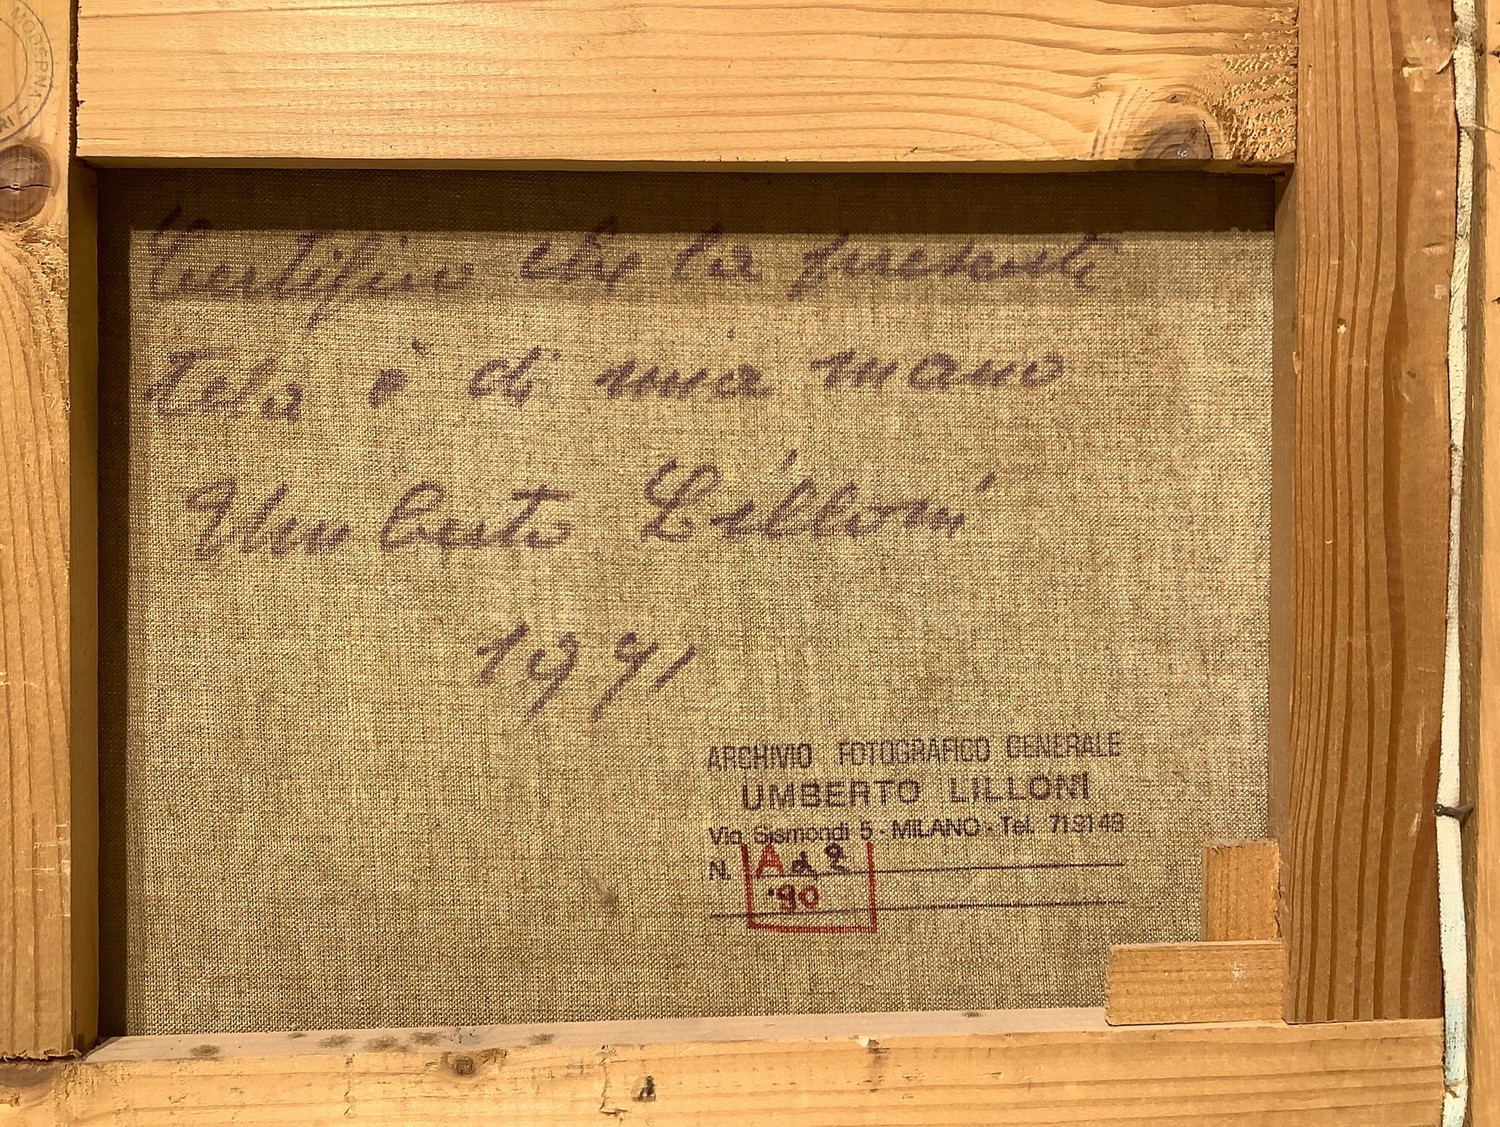 MODERNA
Certifico che la presente
tela è di mia mano
Umberto Lilloni
1971
ARCHIVIO FOTOGRAFICO GENERALE
UMBERTO LILLONI
Via Sismondi 5 - MILANO - Tel. 719148
N. A d 2
'90